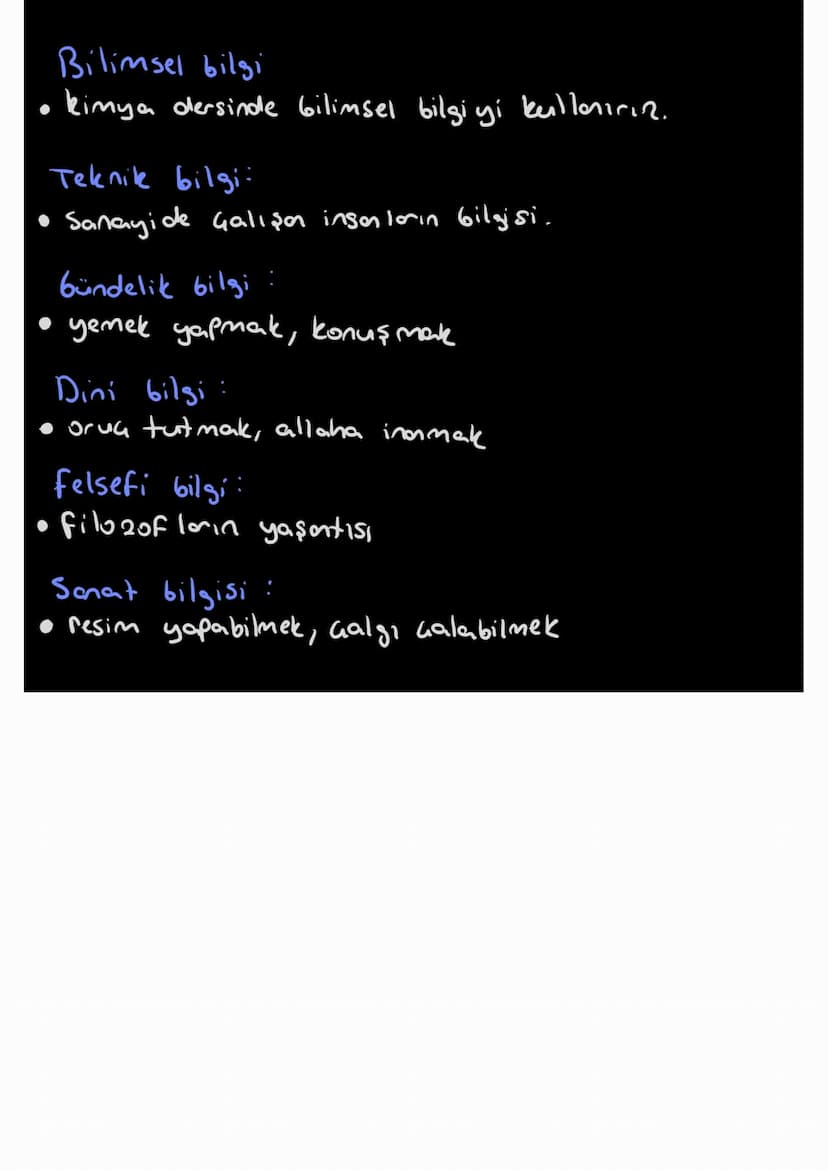 Bilimsel bilgi
• kimya dersinde bilimsel bilgiyi kullanırız.
Teknik bilgi:
• Sanayide çalışan insanların bilgisi.
Gündelik bilgi :
• yemek yapmak, konuşmak
Dini bilgi :
• oruç tutmak, allaha inanmak
Felsefi bilgi :
• filozofların yaşantısı
Sanat bilgisi :
• resim yapabilmek, çalgı çalabilmek